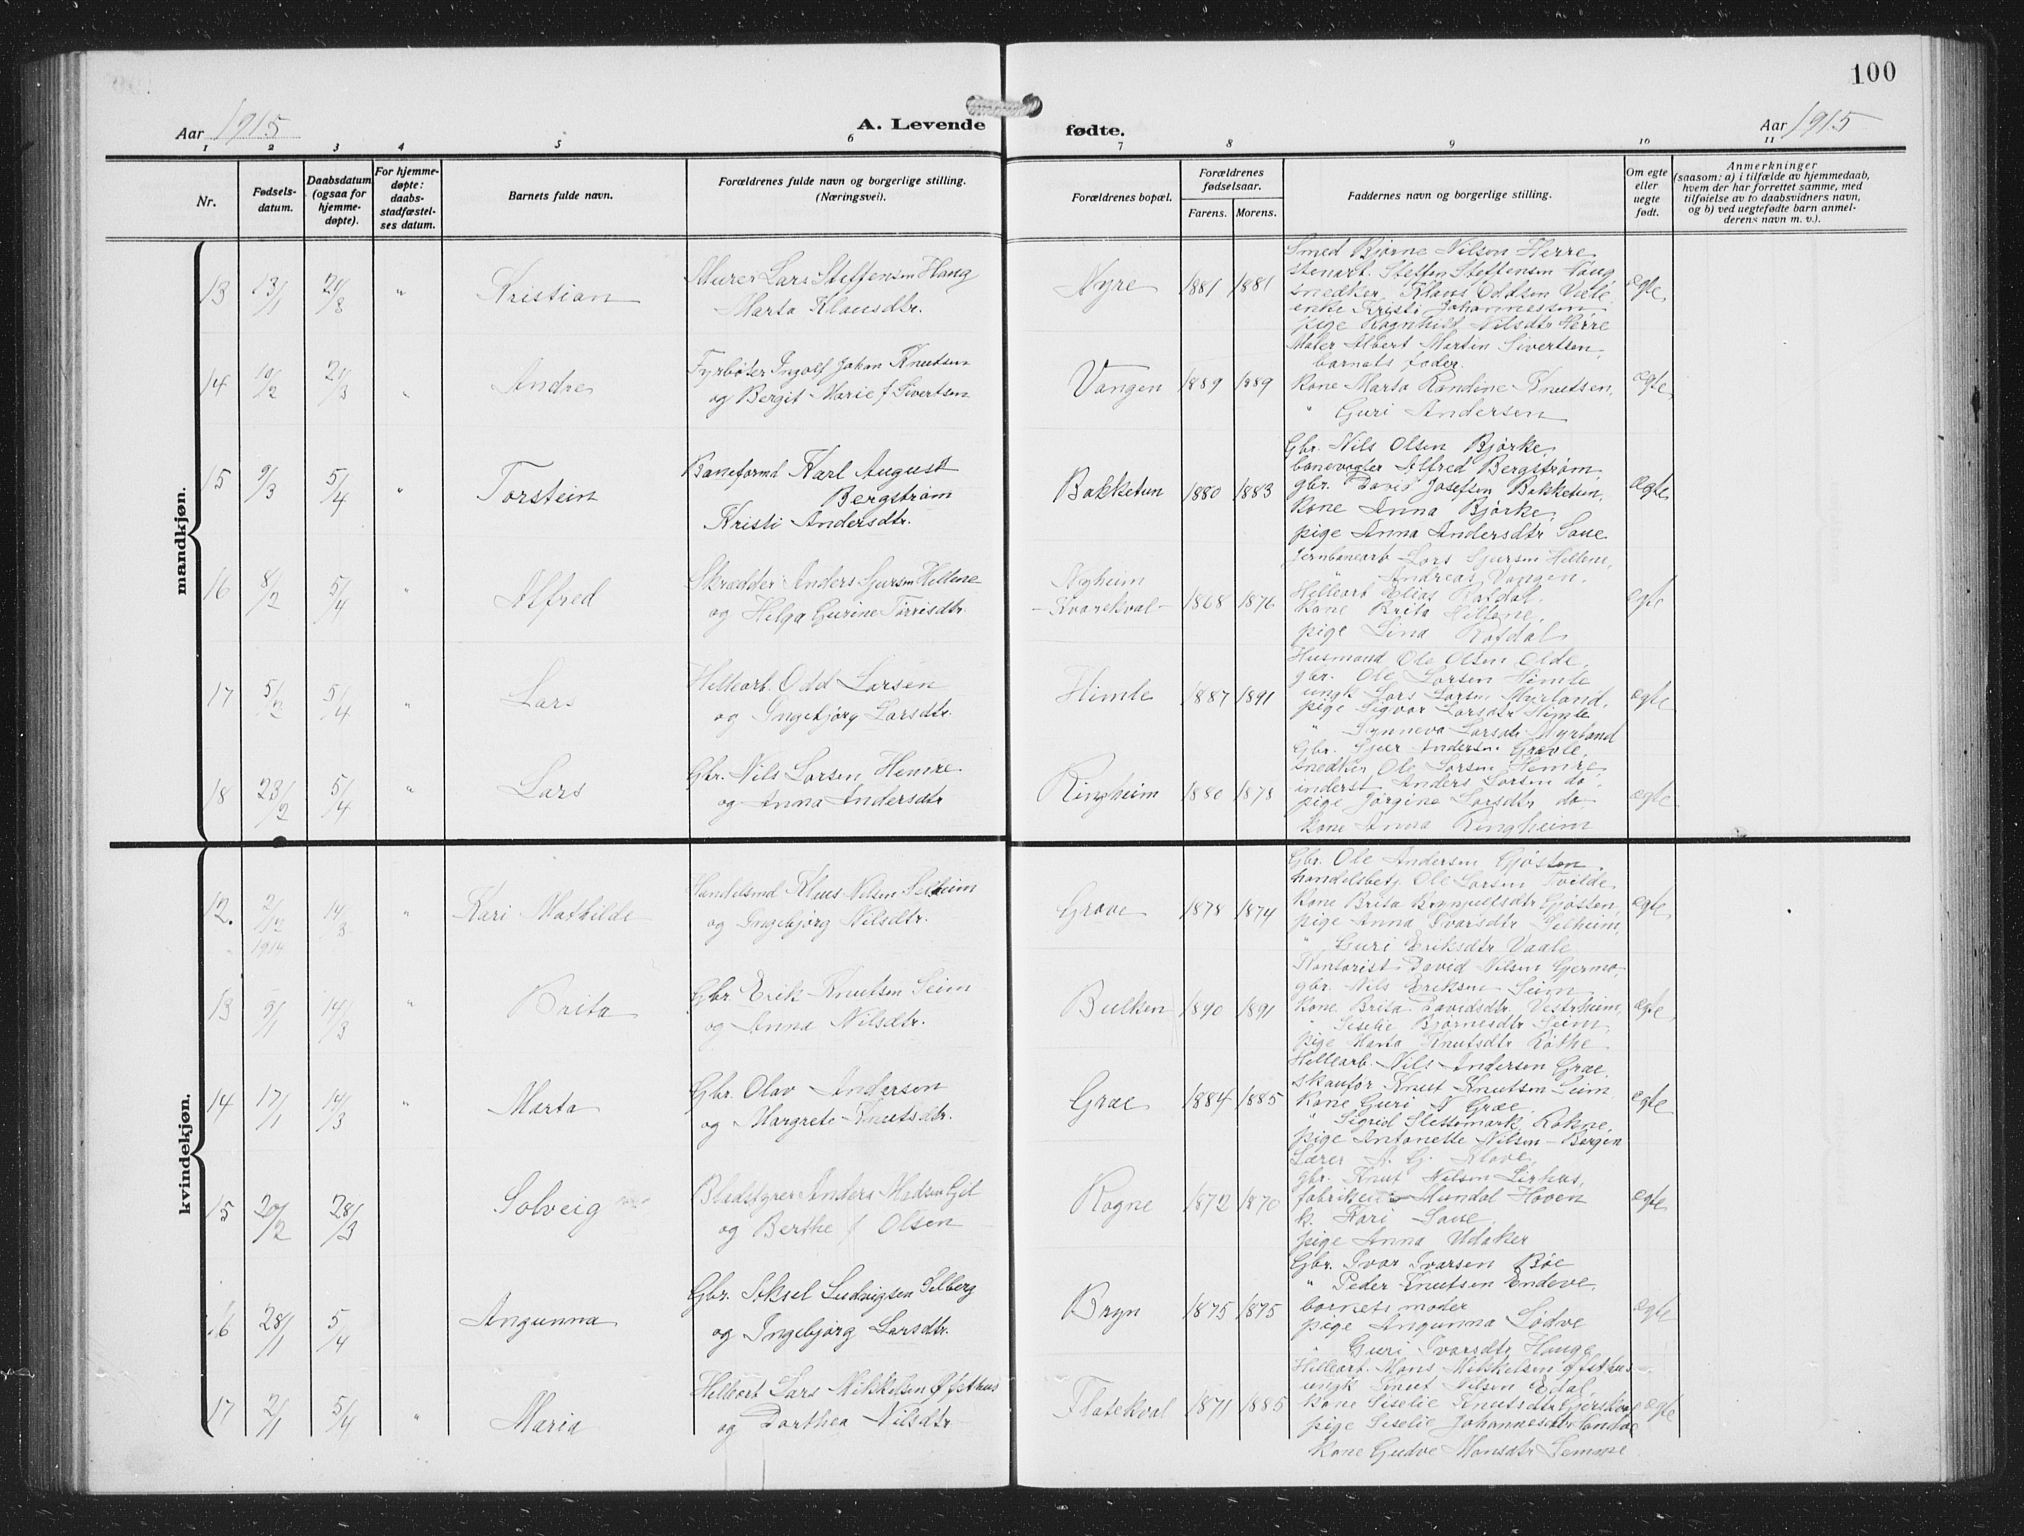 100
Aar 1915
A. Levende fødte.
Aar 1915
1 2 3 4 5 6 7 8 9 10 11
Nr.
Fødsels-
datum.
Daabsdatum
(ogsaa for
hjemme-
døpte).
For hjemme-
døpte:
daabs-
stadfæstel-
ses datum.
Barnets fulde navn.
Forældrenes fulde navn og borgerlige stilling.
(Næringsvei).
Forældrenes bopæl.
Forældrenes
fødselsaar.
Farens. Morens.
Faddernes navn og borgerlige stilling.
Om egte
eller
uegte
født.
Anmerkninger
(saasom: a) i tilfælde av hjemmedaab,
hvem der har forrettet samme, med
tilføielse av to daabsvidners navn,
og b) ved uegtefødte barn anmel-
derens navn m. v.).
mandkjøn.
13 13/1 21/3 " Kristian
Murer Lars Steffensen Haug
Marta Klausdtr.
Nyre 1881 1881
Smed Bjørne Nilsen Herre
stenarb. Steffen Steffensen Haug
snedker Klaus Oddsen Væle
enke Kristi Johannessen
pige Ragnhild Nilsdtr Herre
egte
14 10/2 21/3 " Andre
Fyrbøter Ingolf Johan Knutsen
og Bergit Marie f Sivertsen
Vangen 1889 1889
Maler Albert Martin Sivertsen,
barnets fader.
kone Marta Randine Knutsen,
" Guri Andersen
egte
15 9/3 5/4 " Torstein
Baneformd Karl August
Bergstrøm
Kristi Andersdtr.
Bakketun 1880 1883
Gbr. Nils Olsen Bjørke
banevogter Alfred Bergstrøm
gbr. David Josefsen Bakketun,
kone Anna Bjørke,
pige Anna Andersdtr Saue
egte
16 8/2 5/4 " Alfred
Skrædder Anders Sjursen Hellene
og Helga Gurine Torrisdtr.
Nyheim
- Kvarekval - 1868 1876
Jernbanearb Lars Sjursen Hellene,
" Andreas Vangen.
Hillearb Elias Rotdal.
kone Brita Hellene,
pige Lina Rotdal
egte
17 5/2 5/4 " Lars
Hillearb. Odd Larsen
og Ingebjørg Larsdtr.
Himle 1887 1891
Husmand Ole Olsen Olde,
gbr. Ole Larsen Himle
ungk Lars Larsen Myrland,
pige Sigvor Larsdtr Himle
" Synneva Larsdtr Myrland
egte
18 23/2 5/4 " Lars
Gbr. Nils Larsen Hemre
og Anna Andersdtr
Ringheim 1880 1878
Gbr. Sjur Andersen Græsle,
snedker Ole Larsen Hemre,
inderst Anders Larsen do
pige Jørgine Larsdtr do
kone Anna Ringheim
egte
kvindekjøn.
12. 2/12 1914 14/3 " Kari Mathilde
Handelsmd Klaus Nilsen Seiheim
og Ingebjørg Nilsdtr.
Grove 1878 1874
Gbr. Ole Andersen Gjøsten
handelsbetj. Ole Larsen Tvilde
kone Brita Brynjulfsdtr Gjøsten,
pige Anna Ivarsdtr Selheim,
" Guri Eriksdtr Vaale
egte
13 9/1 14/3 " Brita
Gbr. Erik Knutsen Seim
og Anna Nilsdtr.
Bulken 1890 1891
Kontorist David Nilsen Gjermo
gbr. Nils Eriksen Seim
kone Brita Davidsdtr. Vestrheim,
" Siselie Bjørnesdtr Seim,
pige Marta Knutsdtr Røthe
egte
14 17/1 14/3 " Marta
Gbr. Olav Andersen
og Margrete Knutsdtr.
Græe 1884 1885
Hillearb. Nils Andersen Græe.
skaufør Knut Knutsen Seim
kone Guri N Græe.
" Sigrid Slettemark Rokne,
pige Antonette Nilsen - Bergen
egte
15 20/2 28/3 Solveig
Bladstyrer Anders Madsen Gil
og Berthe f Olsen
Rogne 1872 1870
Lærer A. Gj. Kløve,
gbr. Knut Nilsen Lirhus,
Mundal Hoven
k. Kari Saue.
pige Anna Udaker
egte
16 28/1 5/4 Angunna
Gbr. Aksel Ludvigsen Selberg
og Ingebjørg Larsdtr.
Bryn 1875 1875
Gbr. Ivar Ivarsen Bøe
" Peder Knutsen Endeve,
barnets moder
pige Angunna Lødve
" Guri Ivarsdtr Hauge
egte
17 2/1 5/4 " Maria
Hillearb Lars Mikkelsen Øfsthus
og Dorthea Nilsdtr
Flatekval 1871 1885
Hillearb. Mons Mikkelsen Øfsthus
ungk Knut Nilsen Edal,
kone Siselie Knutsdtr
pige Siselie Johannesdtr
kone Gudve Monsdtr Lemme
egte